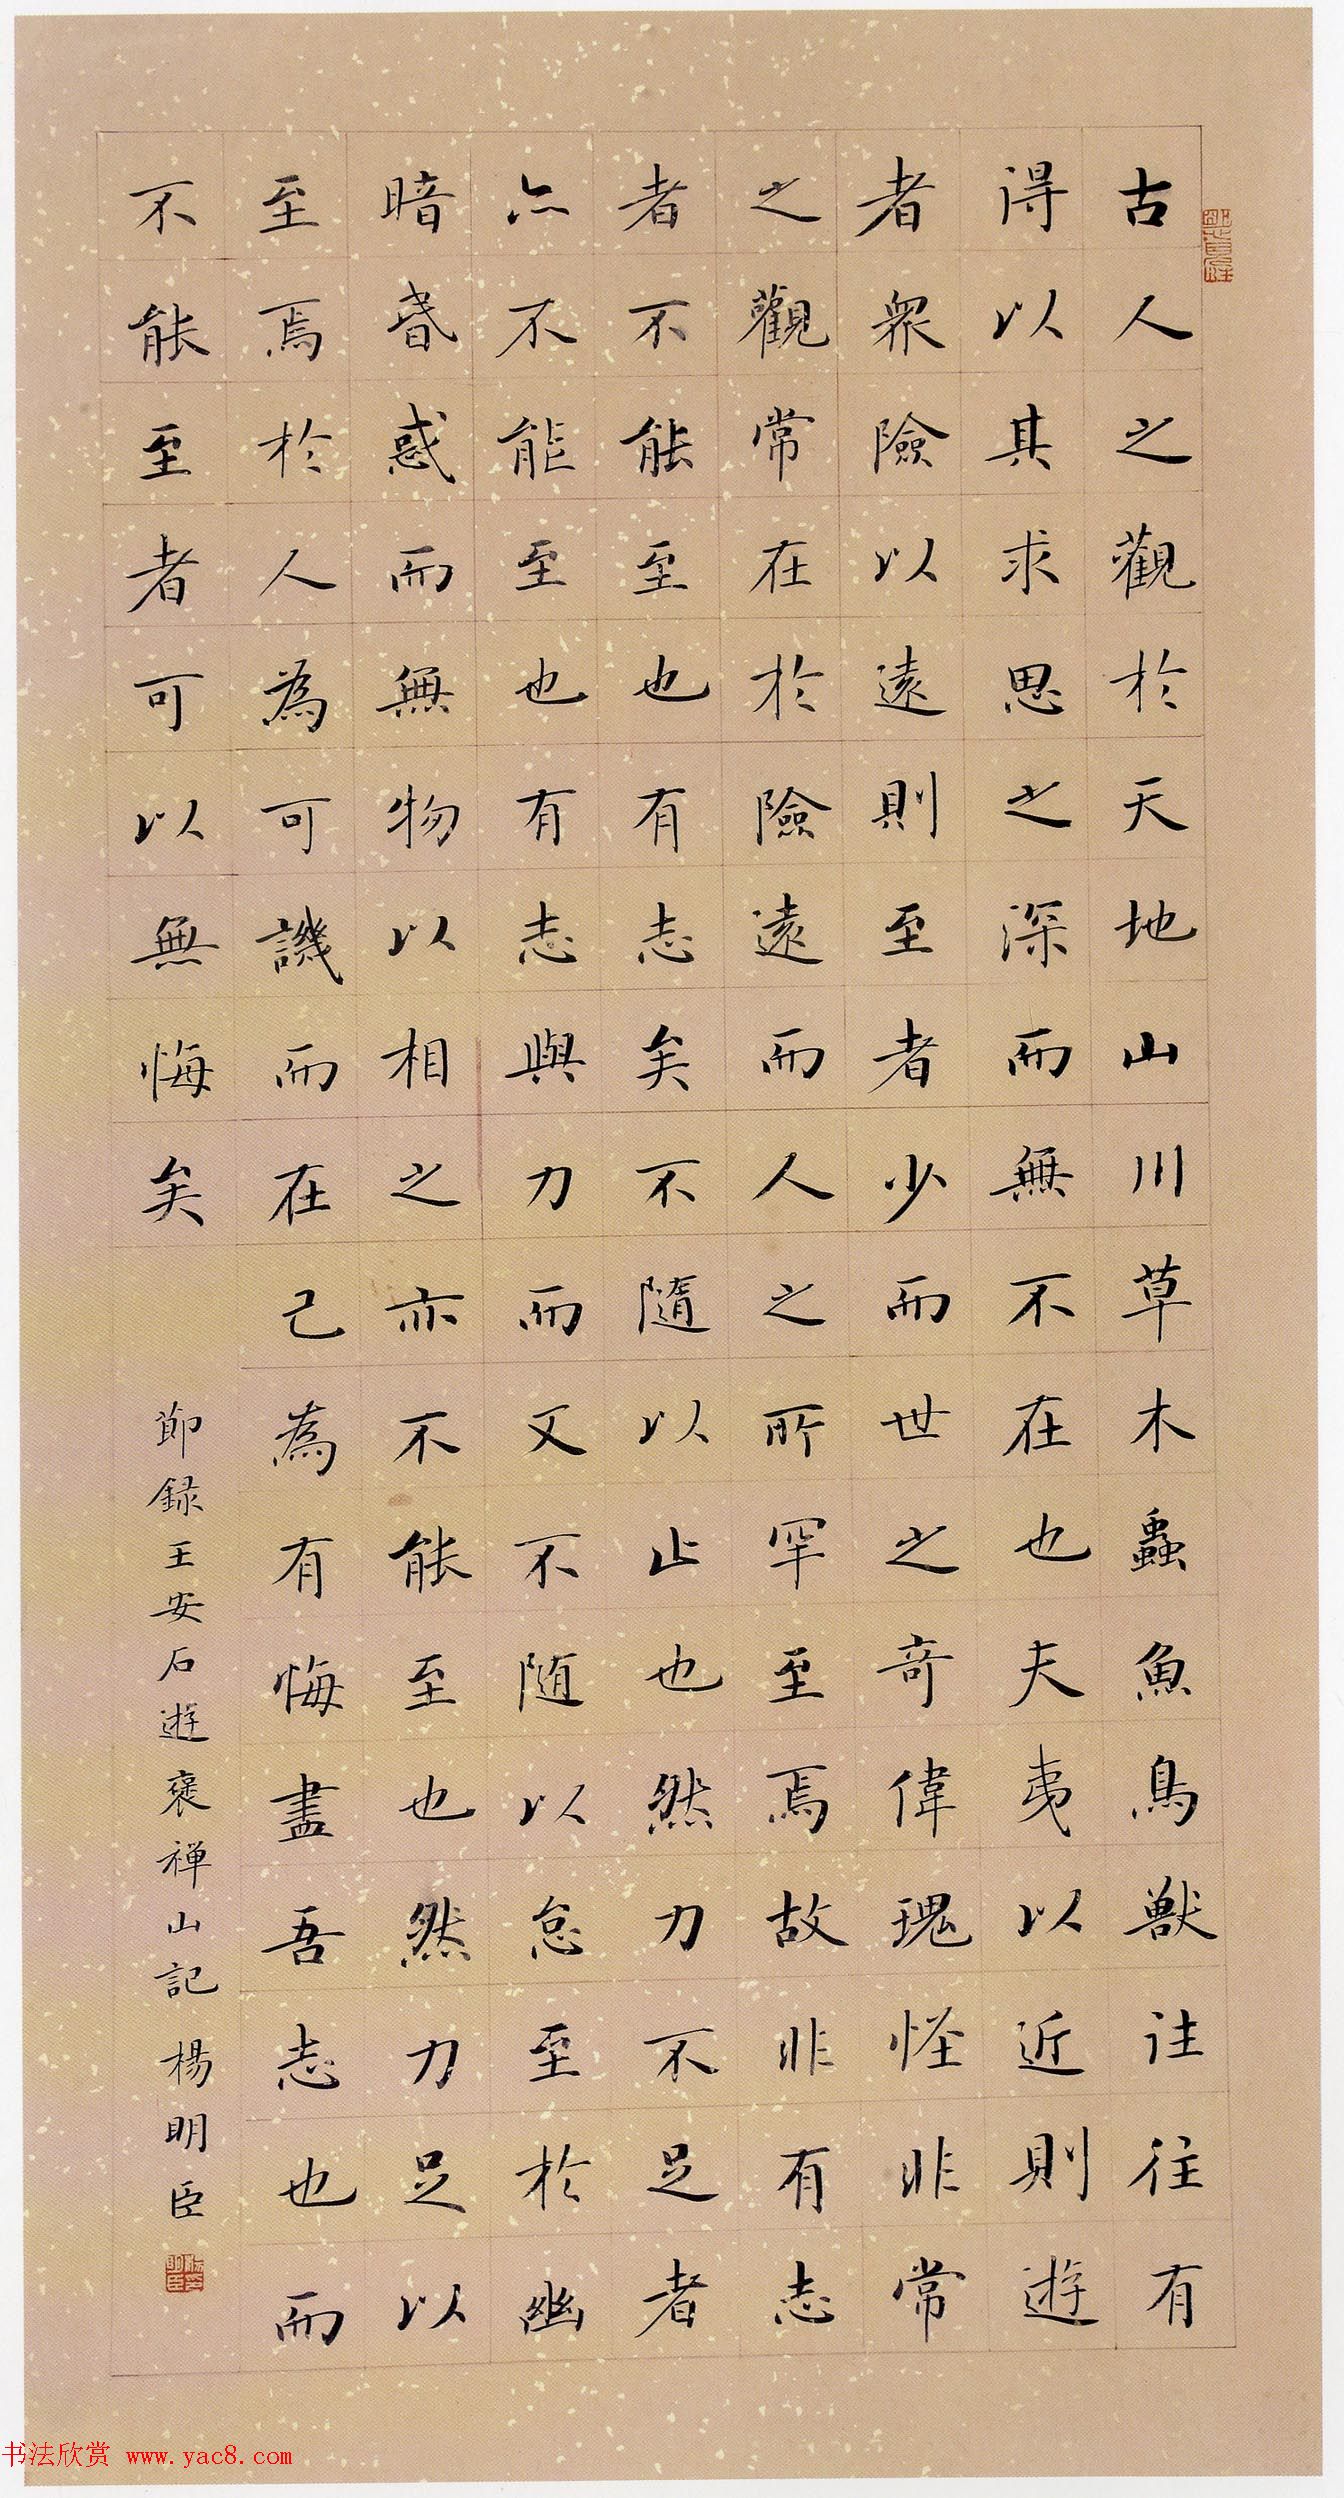 古人之觀於天地山川草木蟲魚鳥獸往往有
得以其求思之深而無不在也夫夷以近則遊
者眾險以遠則至者少而世之奇偉瑰怪非常
之觀常在於險遠而人之所罕至焉故非有志
者不能至也有志矣不隨以止也然力不足者
亦不能至也有志與力而又不随以怠至於幽
暗昏惑而無物以相之亦不能至也然力足以
至焉於人為可譏而在己為有悔盡吾志也而
不能至者可以無悔矣
節録王安石遊褒禅山記楊明臣
书法欣赏 www.yac8.com